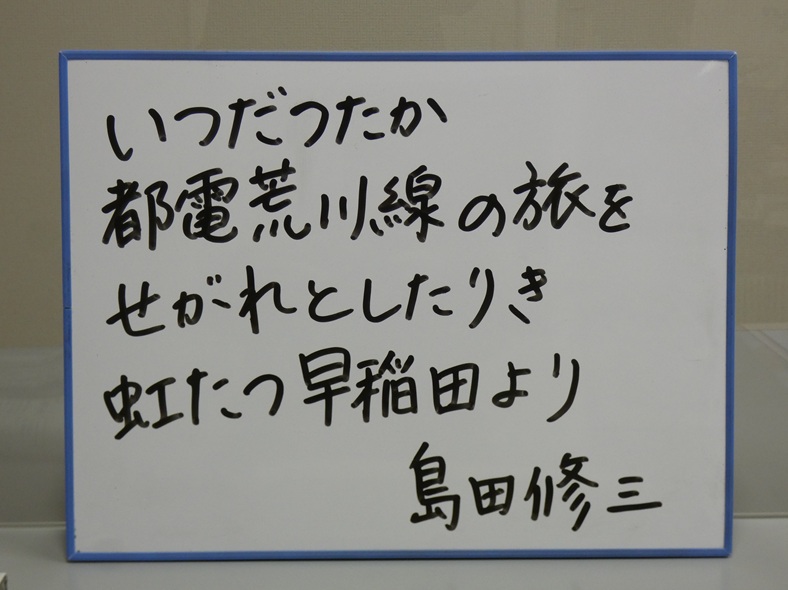 いつだつたか
都電荒川線の旅を
せがれとしたりき
虹たつ早稲田より
島田修三